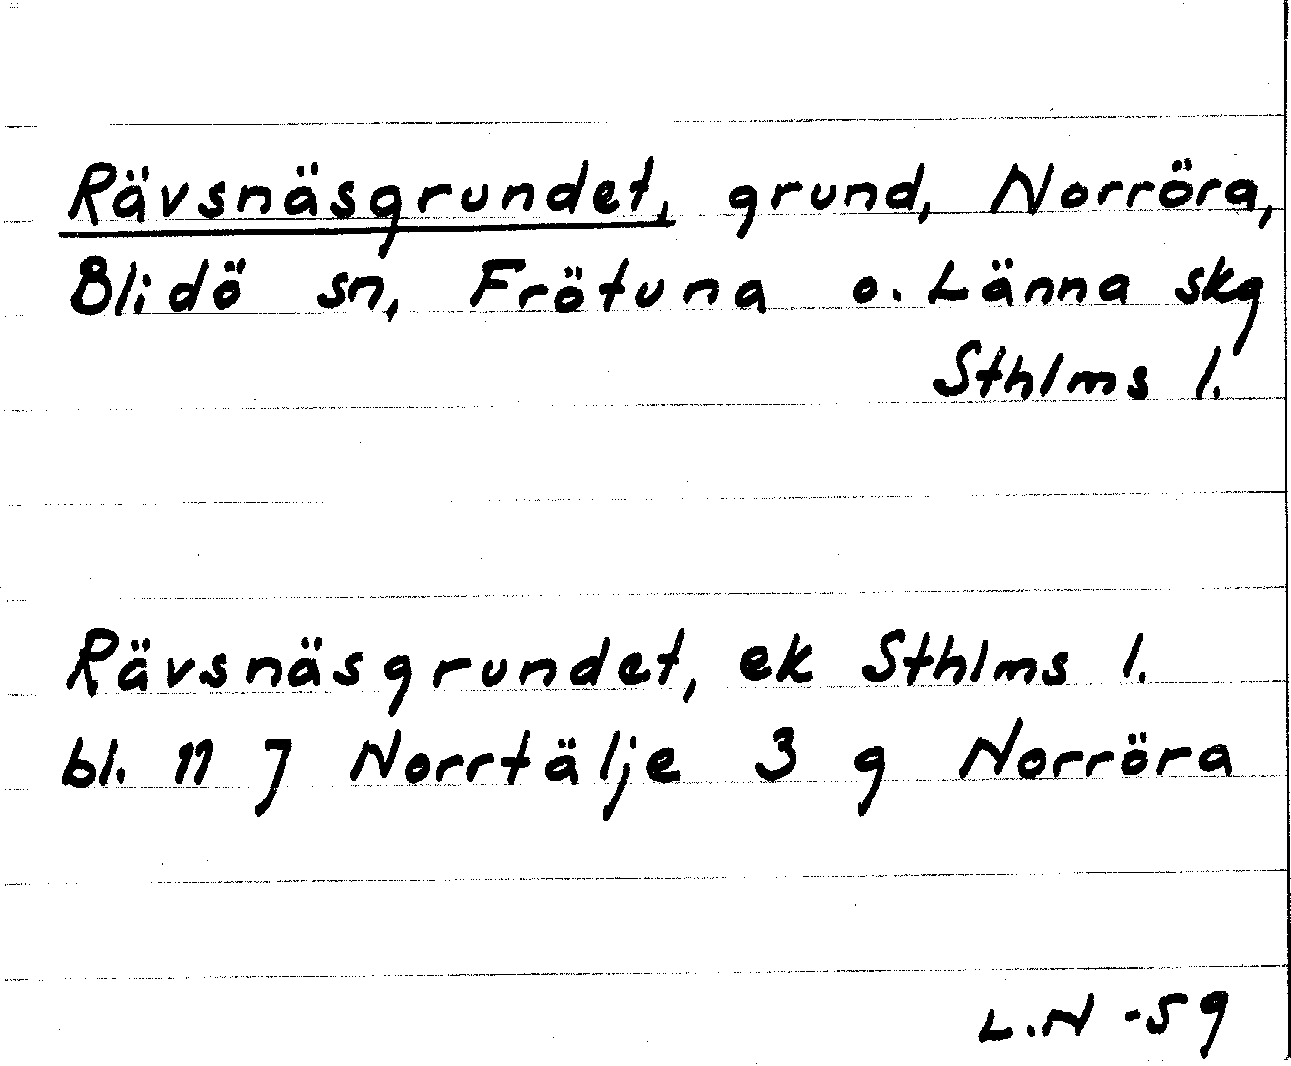 Rävsnäsgrundet, grund, Norröra,
Blidö sn, Frötuna o. Länna skg
Sthlms l.
Rävsnäsgrundet, ek Sthlms l.
bl. 11 J Norrtälje 3 g Norröra
L.N -59